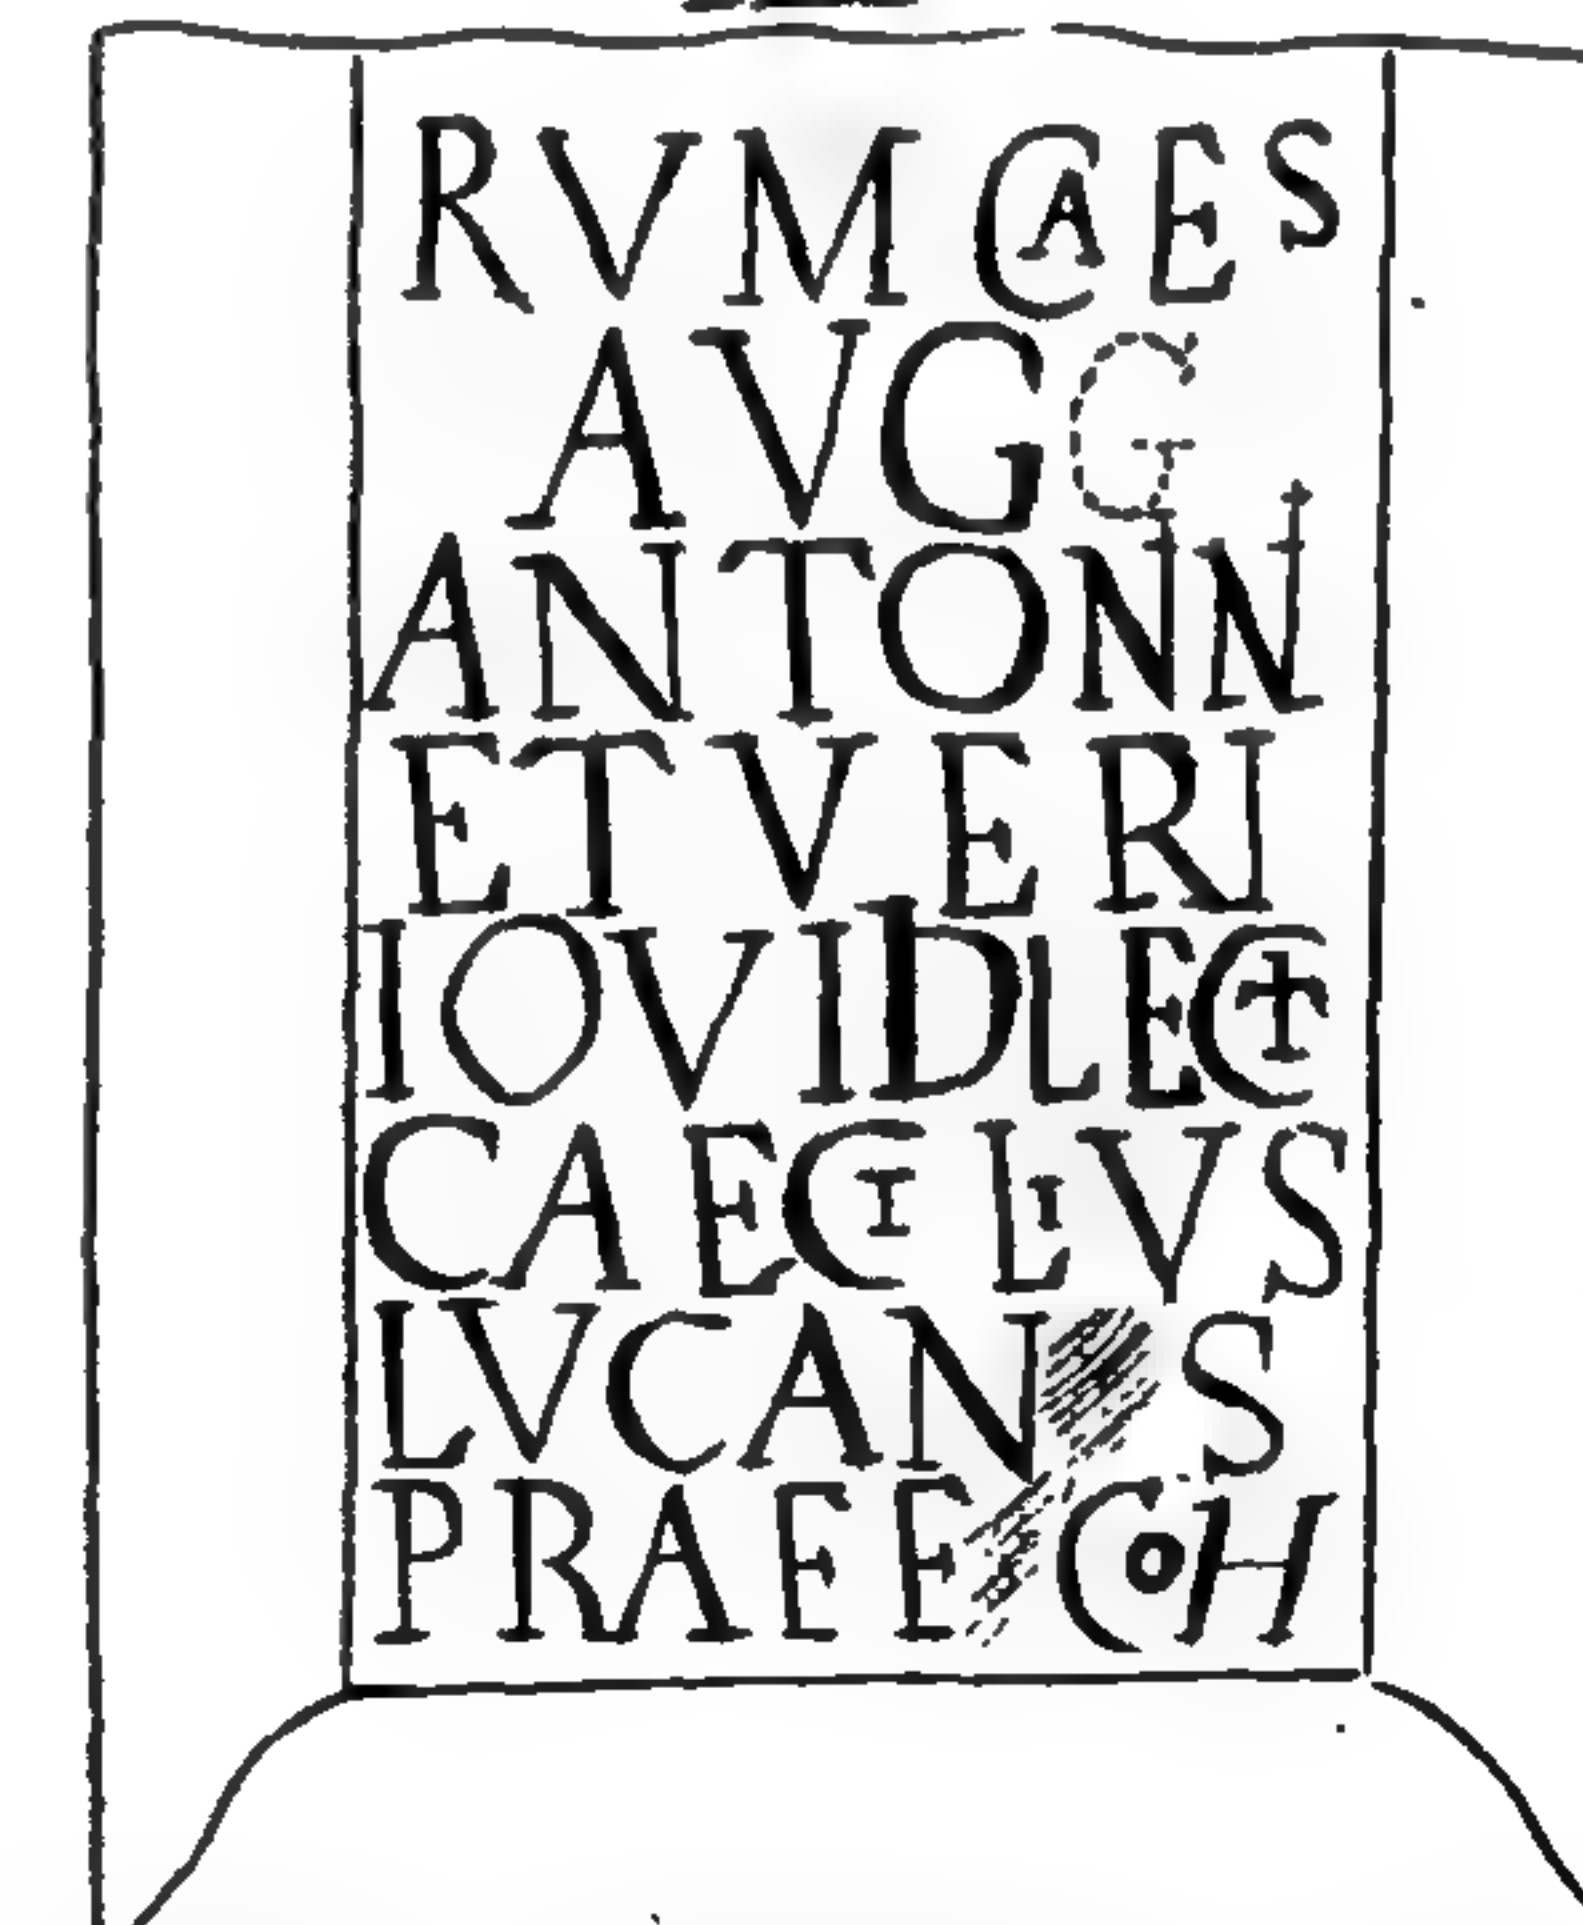 RVM CAES
AVGG
ANTONINI
ET VERI
IOVI DILECT
CAECILIVS
LVCAN S
PRAEF COH